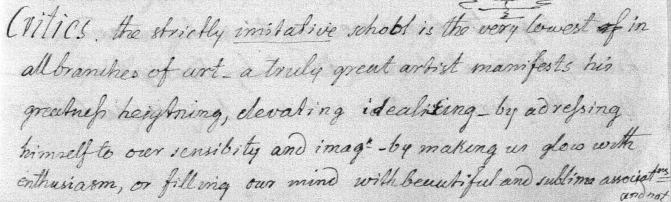 Critics. the strictly imitative school is the very lowest of in
all branches of art - a truly great artist manifests his
greatness heightning, elevating idealising - by adressing
himself to our sensibity and imagn - by making us glow with
enthusiasm, or filling our mind with beautiful and sublime associatons
and not